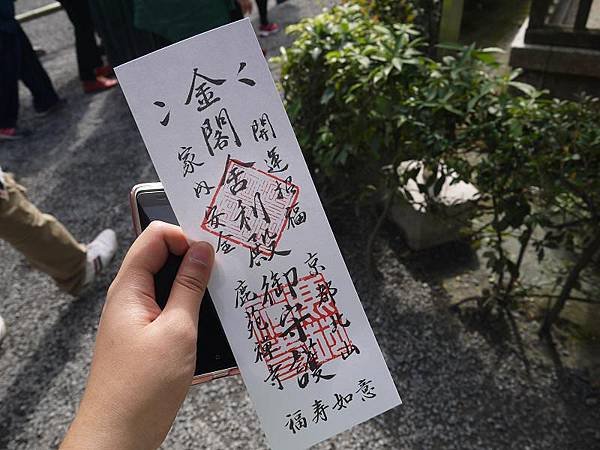 開運招福
金閣舍利殿御守護
家内安全
京都北山
鹿苑禅寺
福寿如意